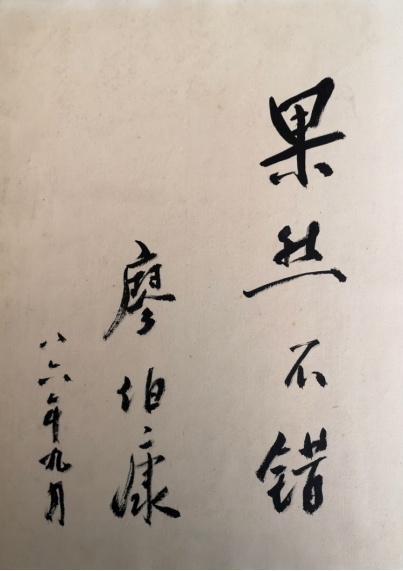 果然不错
廖伯康
八六年九月